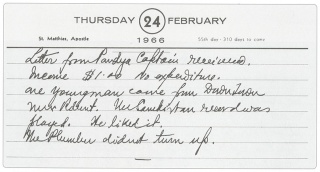 THURSDAY 24 FEBRUARY
1966
St. Matthias, Apostle
55th day - 310 days to come
Letter from Pandya Captain received.
Income $1.00 No expenditure.
One youngman came from Downtown
Mr. Robert. The Sanskrtan record was
played. He liked it.
The Plumber did not turn up.